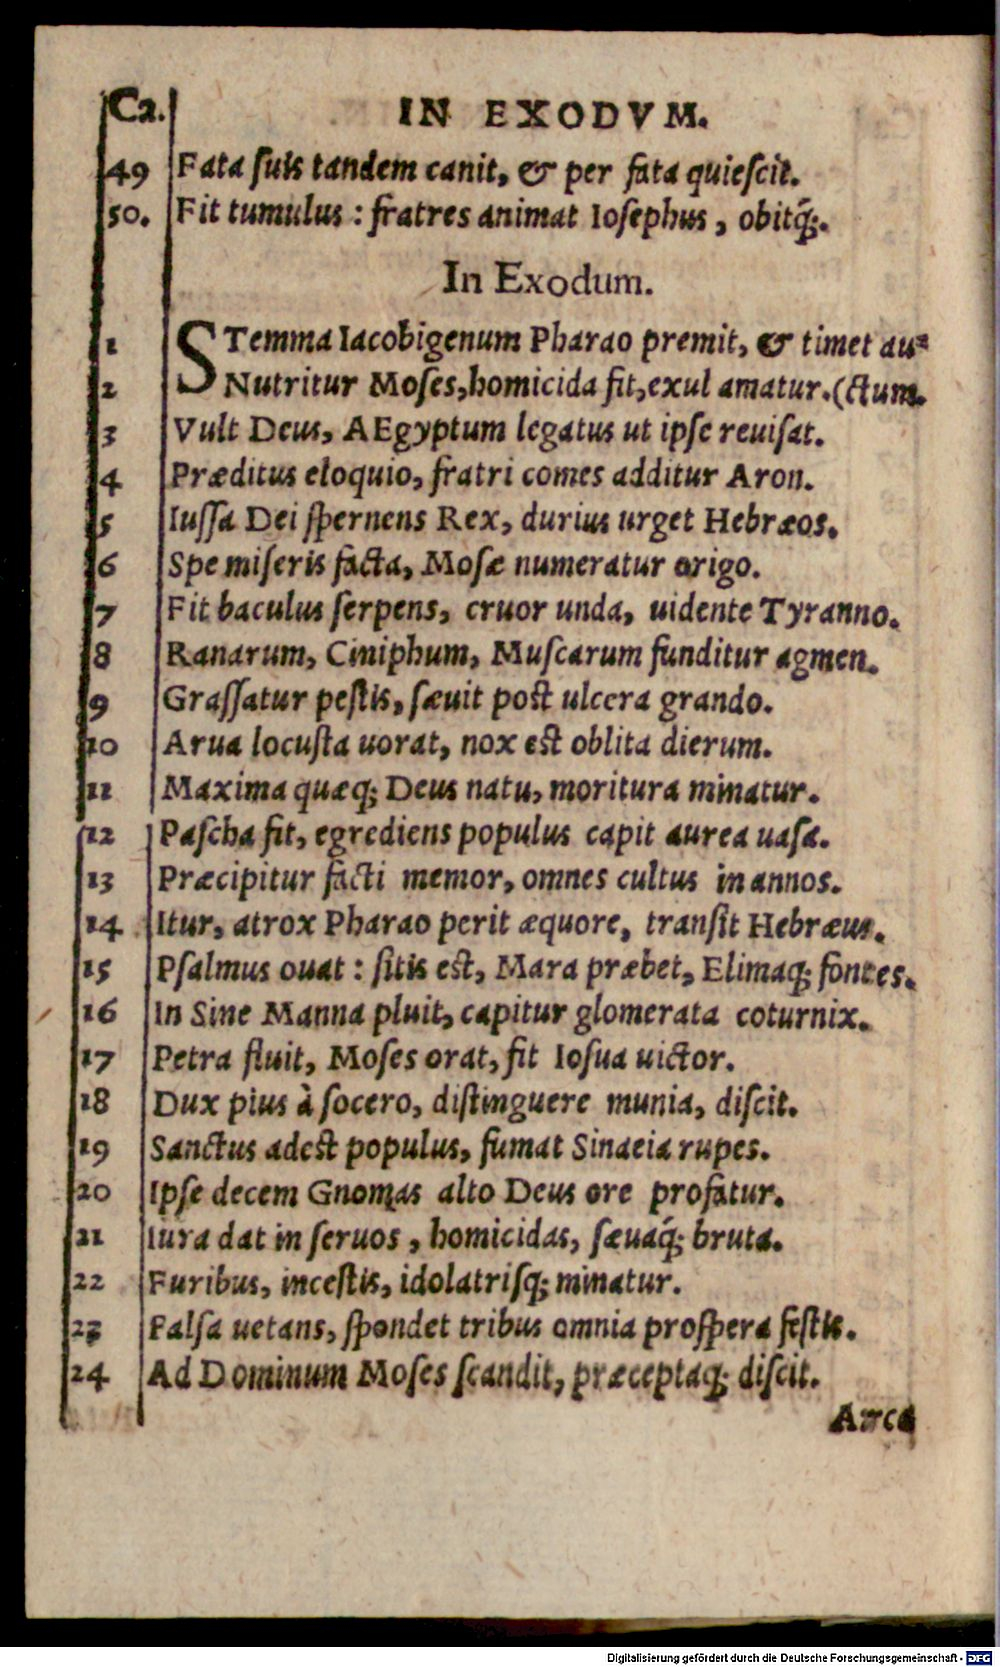 Ca. IN EXODVM.
49 Fata suis tandem canit, & per fata quiescit.
50. Fit tumulus : fratres animat Iosephus , obitq́;.
In Exodum.
1 STemma Iacobigenum Pharao premit, & timet au-
2 Nutritur Moses,homicida fit,exul amatur.(ctum.
3 Vult Deus, AEgyptum legatus ut ipse reuisat.
4 Præditus eloquio, fratri comes additur Aron.
5 Iussa Dei spernens Rex, durius urget Hebræos.
6 Spe miseris facta, Mosæ numeratur origo.
7 Fit baculus serpens, cruor unda, uidente Tyranno.
8 Ranarum, Ciniphum, Muscarum funditur agmen.
9 Grassatur pestis, sæuit post ulcera grando.
10 Arua locusta uorat, nox est oblita dierum.
11 Maxima quæq; Deus natu, moritura minatur.
12 Pascha fit, egrediens populus capit aurea uasa.
13 Præcipitur facti memor, omnes cultus in annos.
14 Itur, atrox Pharao perit æquore, transit Hebræus.
15 Psalmus ouat : sitis est, Mara præbet, Elimaq; fontes.
16 In Sine Manna pluit, capitur glomerata coturnix.
17 Petra fluit, Moses orat, fit Iosua uictor.
18 Dux pius à socero, distinguere munia, discit.
19 Sanctus adest populus, fumat Sinaeia rupes.
20 Ipse decem Gnomas alto Deus ore profatur.
21 Iura dat in seruos , homicidas, sæuaq́; bruta.
22 Furibus, incestis, idolatrisq; minatur.
23 Falsa uetans, spondet tribus omnia prospera festis.
24 Ad Dominum Moses scandit, præceptaq; discit.
Arca
Digitalisierung gefördert durch die Deutsche Forschungsgemeinschaft - DFG